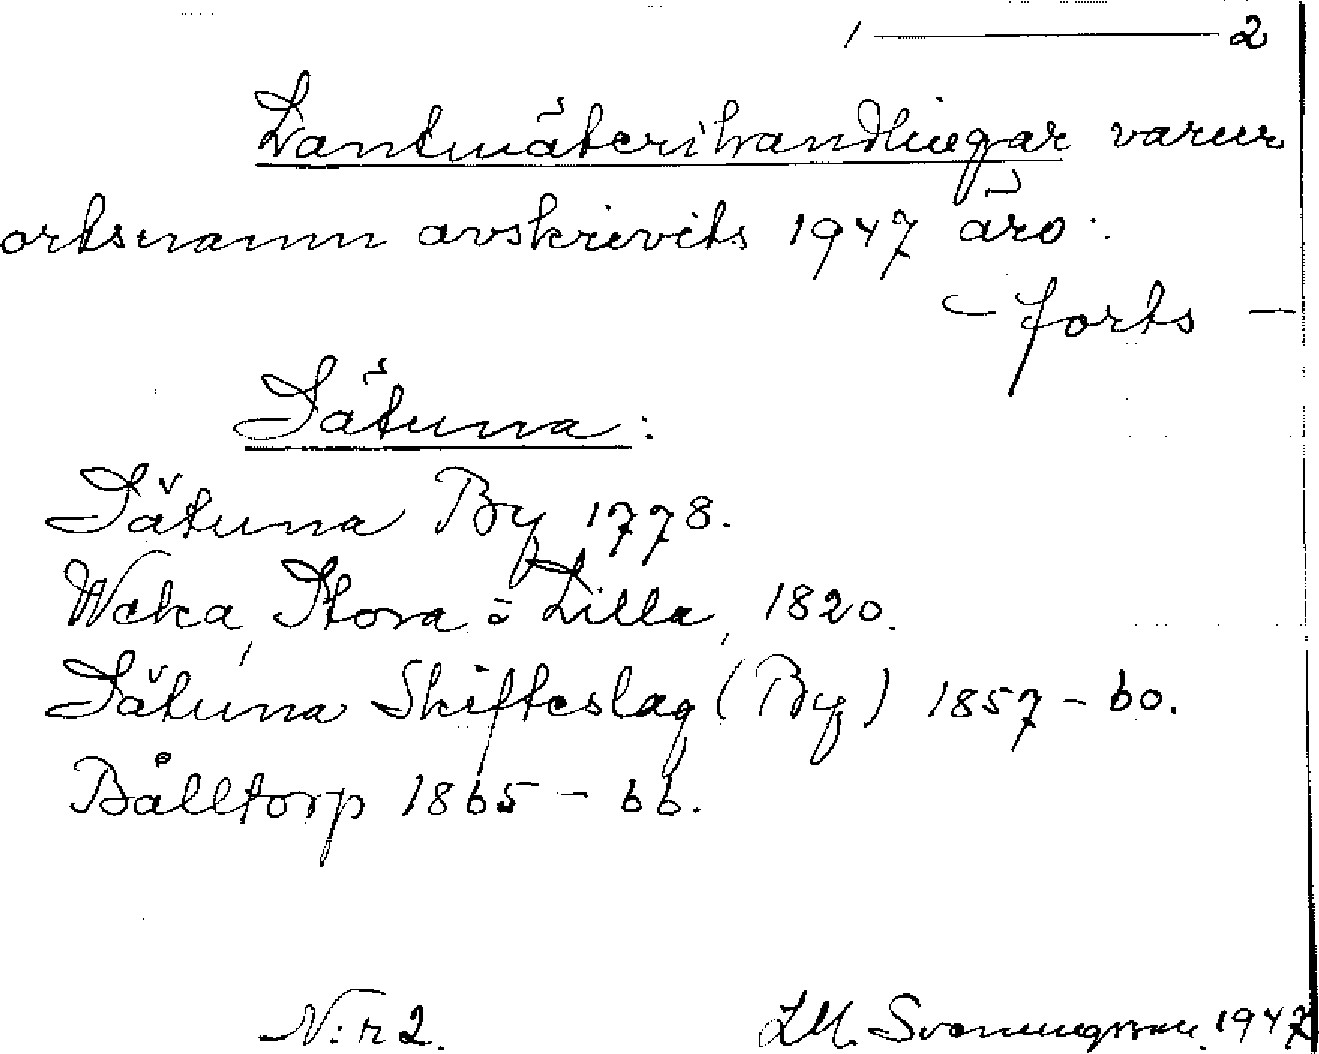 1 ——— 2
Lantmäterihandlingar varur
ortsnamn avskrivits 1947 äro:
- forts -
Sätuna:
Sätuna By 1778.
Waka, Stora o Lilla, 1820.
Sätuna Skifteslag (By) 1857-60.
Bålltorp 1865-66.
N:r 2. LM. Svenningsson. 1947